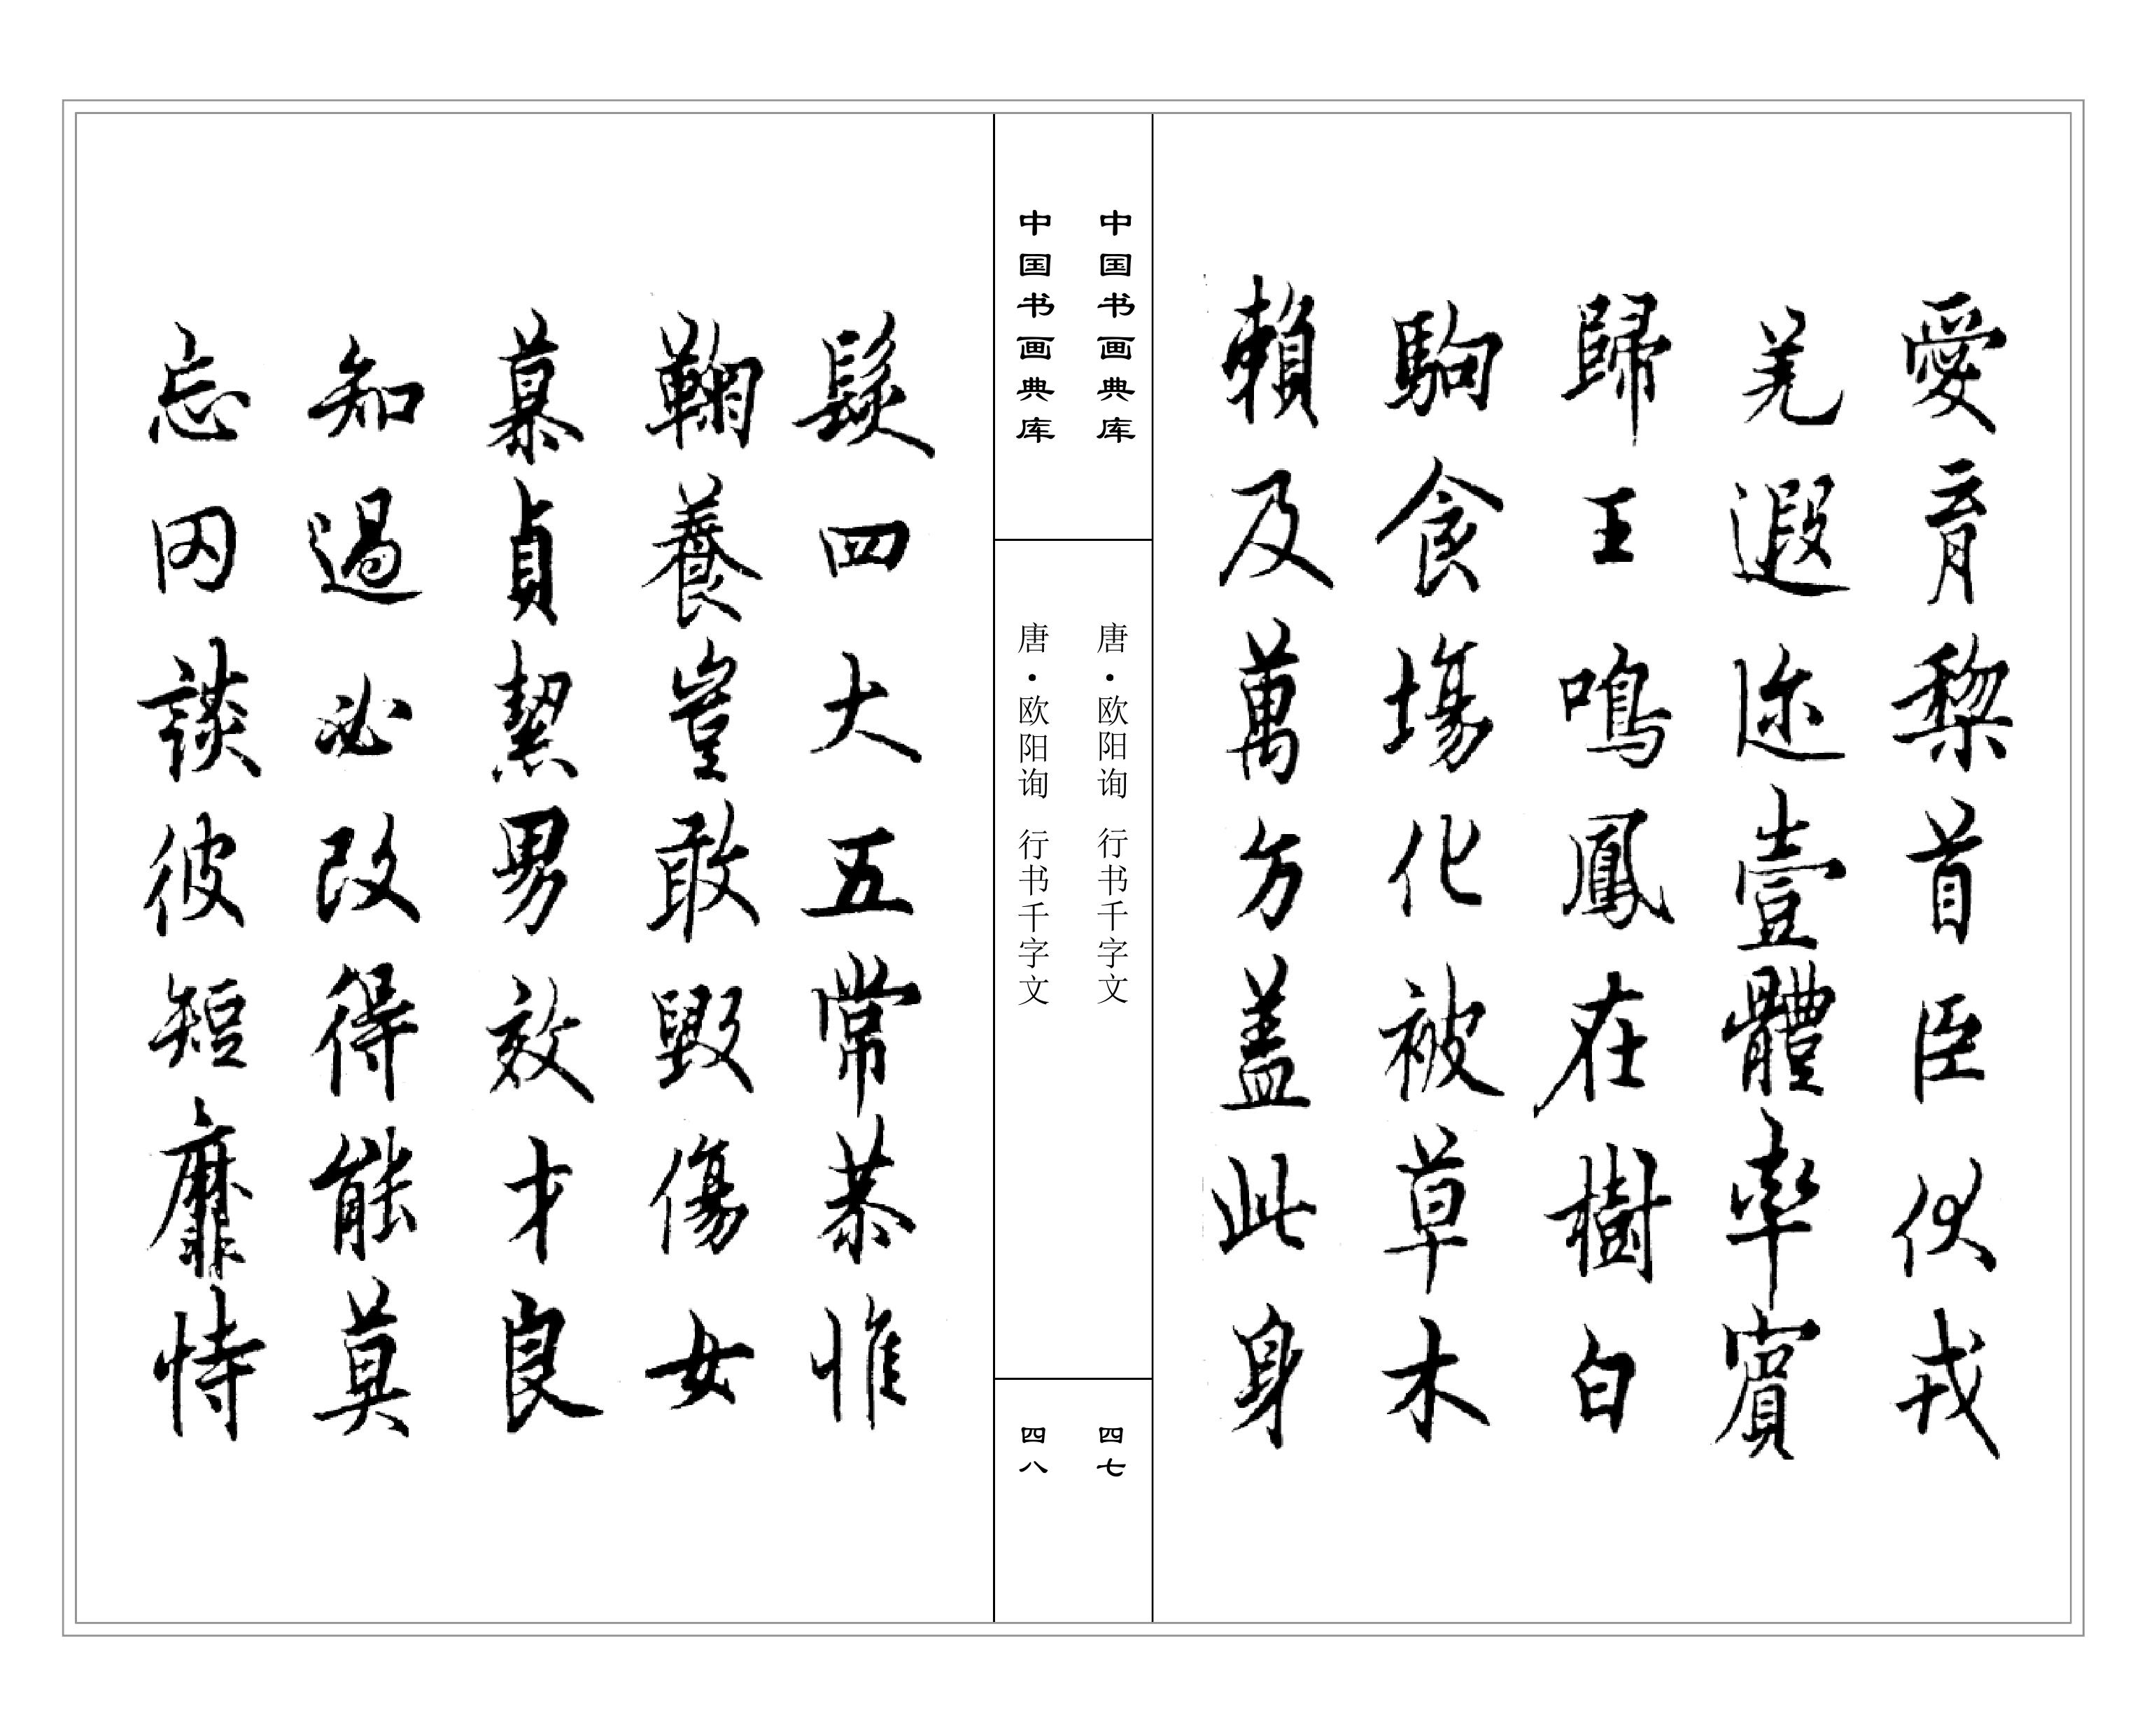 愛育黎首臣伏戎
羌遐迩壹體率賓
歸王鳴鳳在樹白
駒食場化被草木
賴及萬方蓋此身
中国书画典库
唐·欧阳询 行书千字文
四七
中国书画典库
唐·欧阳询 行书千字文
四八
髮四大五常恭惟
鞠養豈敢毀傷女
慕貞絜男效才良
知過必改得能莫
忘罔談彼短靡恃